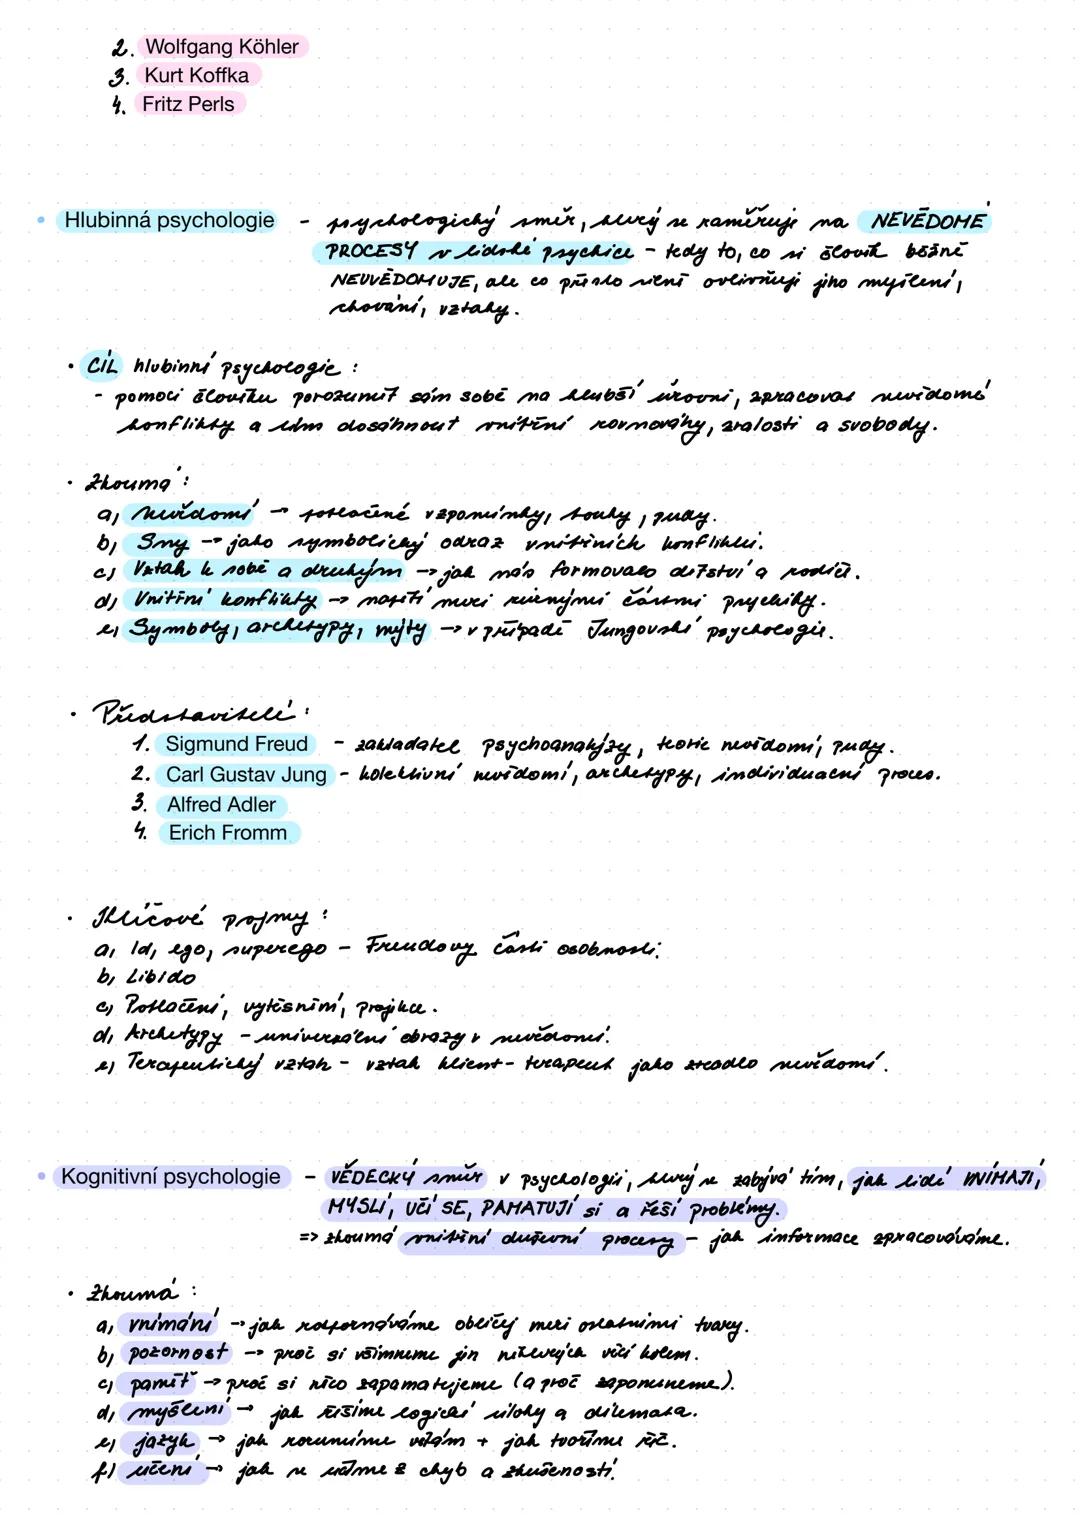 2. Wolfgang Köhler
3. Kurt Koffka
4. Fritz Perls
• Hlubinná psychologie - psychologický směr, který se zaměřuje na NEVĚDOMÉ
PROCESY v lidské psychice - tedy to, co si člověk běžně
NEUVĚDOMUJE, ale co přesto silně ovlivňuje jeho myšlení,
chování, vztahy.
• CÍL hlubinné psychologie :
- pomoci člověku porozumět sám sobě na hlubší úrovni, zpracovat nevědomé
konflikty a tím dosáhnout vnitřní rovnováhy, zralosti a svobody.
• Zkoumá :
a) nevědomí → potlačené vzpomínky, touhy, pudy.
b) Sny → jako symbolický odraz vnitřních konfliktů.
c) Vztah k sobě a druhým → jak nás formovalo dětství a rodiče.
d) Vnitřní konflikty → napětí mezi různými částmi psychiky.
e) Symboly, archetypy, mýty → v případě Jungovské psychologie.
• Představitelé :
1. Sigmund Freud - zakladatel psychoanalýzy, teorie nevědomí, pudy.
2. Carl Gustav Jung - kolektivní nevědomí, archetypy, individuační proces.
3. Alfred Adler
4. Erich Fromm
• Klíčové pojmy :
a) Id, ego, superego - Freudovy části osobnosti.
b) Libido
c) Potlačení, vytěsnění, projekce.
d) Archetypy - univerzální obrazy v nevědomí.
e) Terapeutický vztah - vztah klient-terapeut jako zrcadlo nevědomí.
• Kognitivní psychologie - VĚDECKÝ směr v psychologii, který se zabývá tím, jak lidé VNÍMAJÍ,
MYSLÍ, UČÍ SE, PAMATUJÍ si a řeší problémy.
=> zkoumá vnitřní duševní procesy - jak informace zpracováváme.
• Zkoumá :
a) vnímání → jak rozpoznáváme obličej mezi ostatními tvary.
b) pozornost → proč si všimneme jen některých věcí kolem.
c) paměť → proč si něco zapamatujeme (a proč zapomeneme).
d) myšlení → jak řešíme logické úlohy a dilemata.
e) jazyk → jak rozumíme větám + jak tvoříme řeč.
f) učení → jak se učíme z chyb a zkušeností.